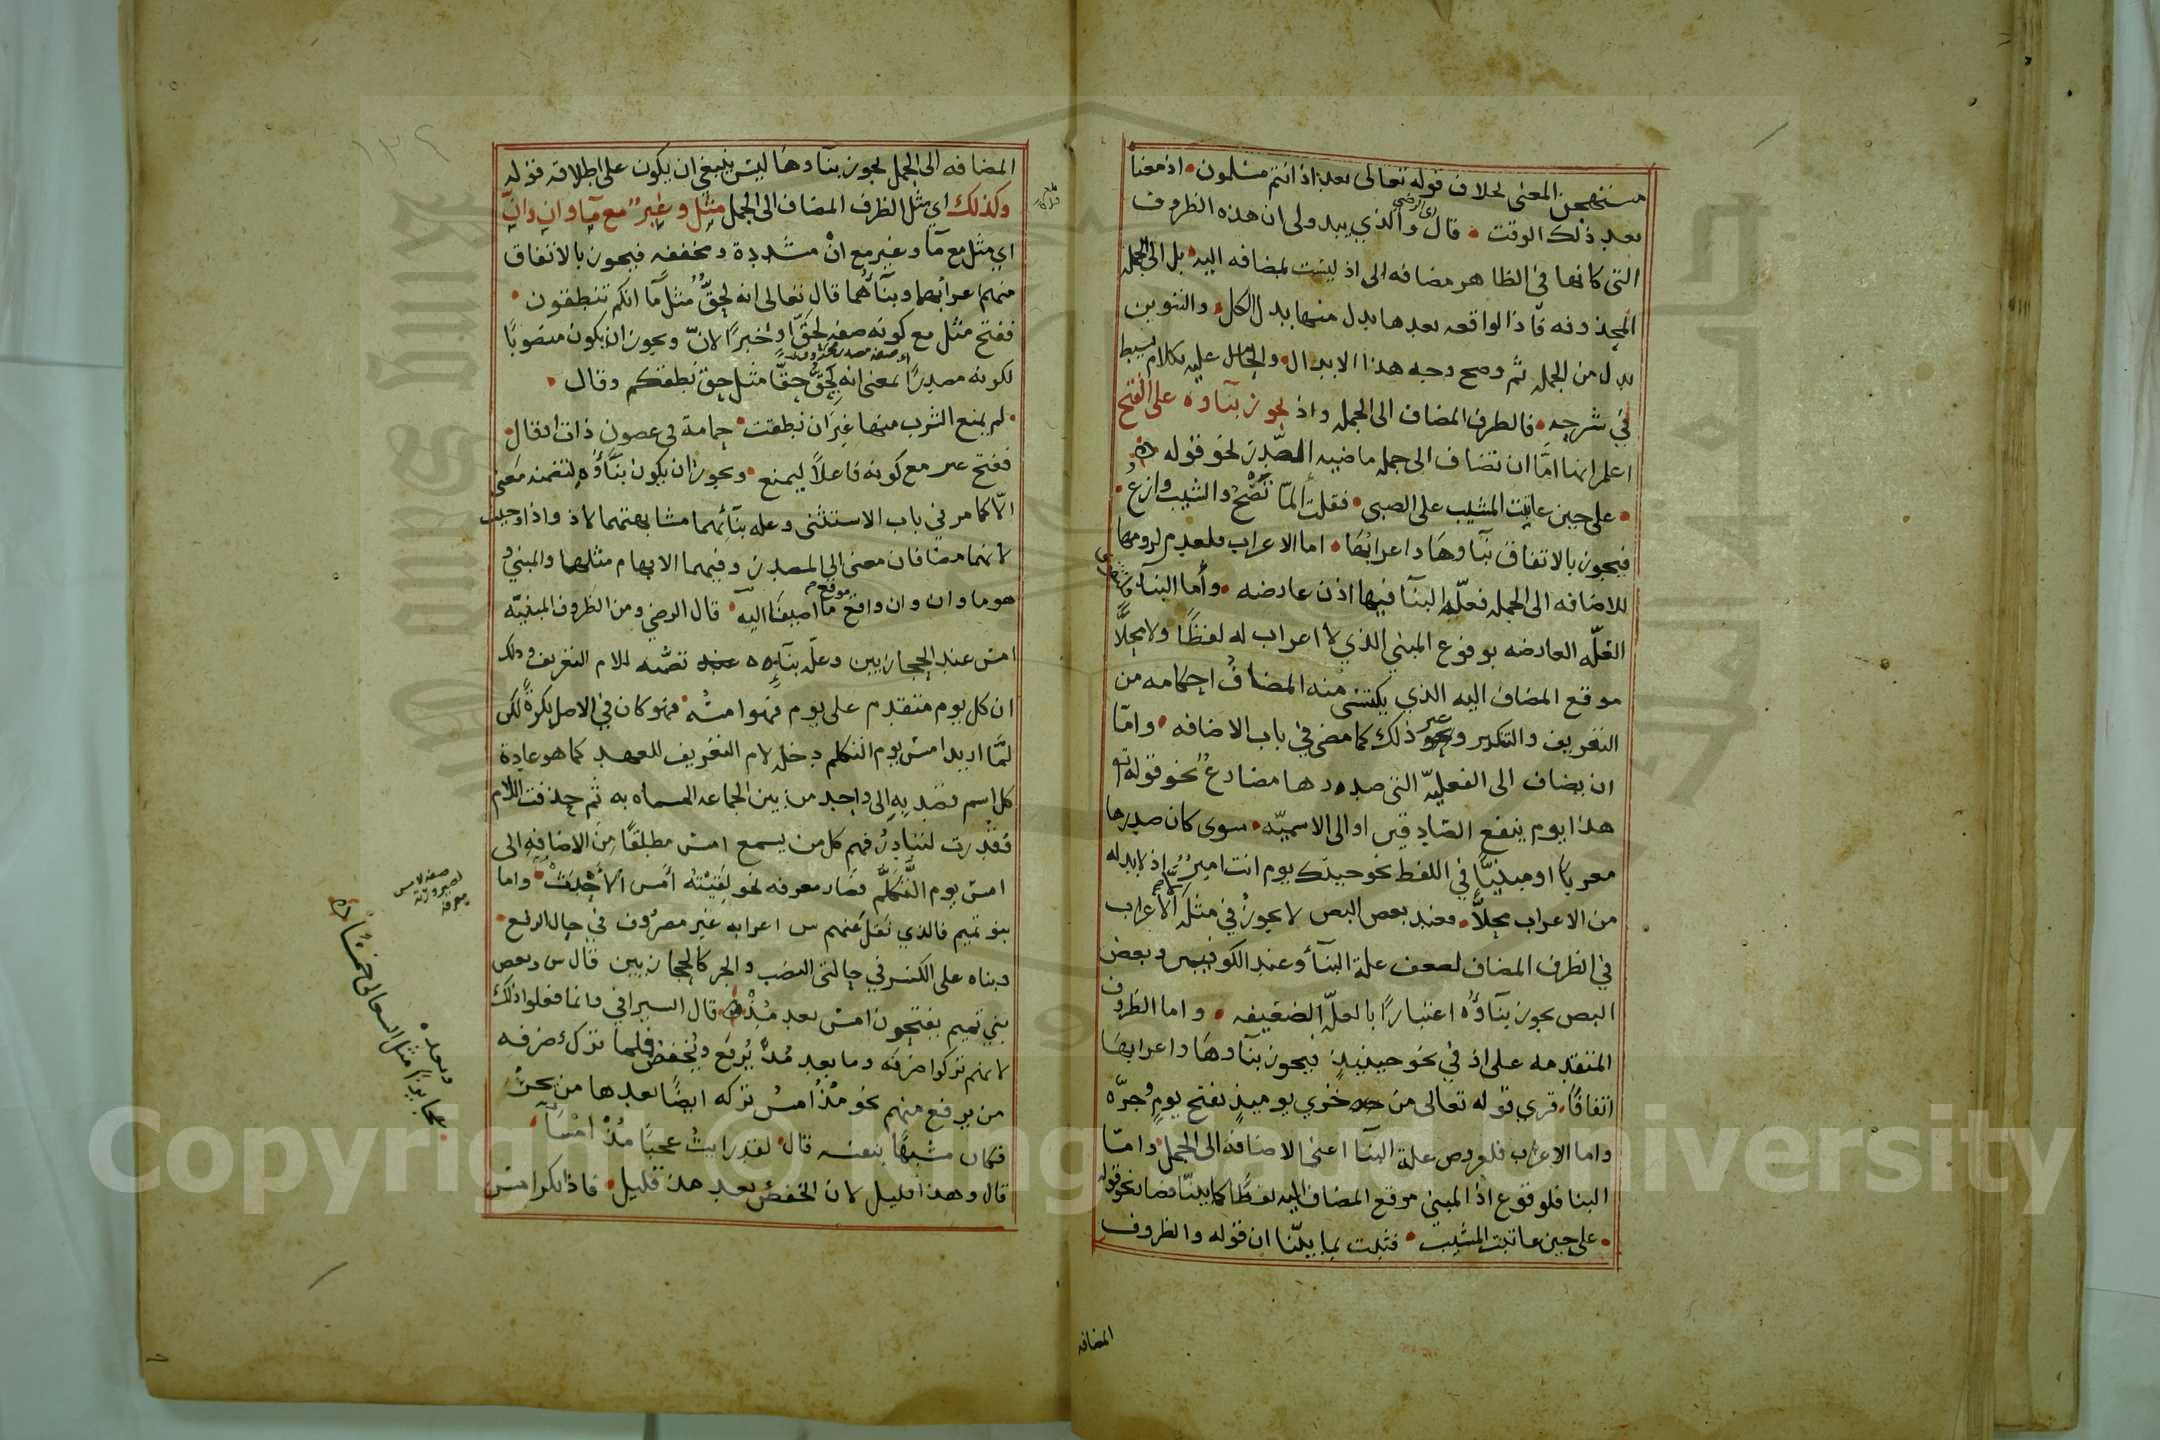 مستهجن المعنى بخلاف قوله تعالى بعد اذ انتم مسلمون اذ معنا
بعد ذلك الوقت قال اي الرضي والذي يبدو لى ان هذه الظروف
التى كانها في الظاهر مضافه الى اذ ليست بمضافه اليه بل الى الجمله
المحذوفه فاذ الواقعه بعدها بدل منها بدل الكل والتنوين
بدل من الجمله ثم وضح وجه هذا الابدال والحامل عليه بكلام بسيط
في شرحه فالظرف المضاف الى الجمله واذ يجوز بناوه على الفتح
اعلم انها امّا ان تضاف الى جمله ماضيه الصّدر نحو قوله
على حين عاتبت المشيب على الصبى فقلت ألمّا تصح والشيب وازع
فيجوز بالاتفاق بناوها واعرابها اما الاعراب فلعدم لزومها
للاضافه الى الجمله فعلّه البنا فيها اذن عارضه وأما البنا
العلّه العارضه بوقوع المبني الذي لا اعراب له لفظًا ولا محلًّا
موقع المضاف اليه الذي يكتسى منه المضاف احكامه من
التعريف والتنكير وغير ذلك كما مضى في باب الاضافه وامّا
ان يضاف الى الفعليّه التى صدرها مضارع نحو قوله تع
هذا يوم ينفع الصّادقين او الى الاسميّه سوى كان صدرها
معربا او مبنيّا في اللفظ نحو جيتك يوم انت اميرٌ اذ لا بد له
من الاعراب محلًّا فعند بعض البص لا يجوز في مثله الّا الاعراب
في الظرف المضاف لضعف علة البنآ وعند الكوفيين وبعض
البص يجوز بناؤه اعتبارًا بالعلّه الضعيفه واما الظروف
المتقدمه على اذ في نحو حينيذٍ فيجوز بناوها واعرابها
اتفاقًا قري قوله تعالى من خزي يوميذٍ بفتح يوم وجرّه
واما الاعراب فلعروض علة البنآ اعنى الاضافه الى الجمل وامّا
البنا فلوقوع اذ المبني موقع المضاف اليه لفظًا كما بيّنّا فصا نحو قوله
على حين عاتبت المشيب فثبت بما بيّنّا ان قوله والظروف
المضافه
المضافه الى الجمل يجوز بناوها ليس ينبغي ان يكون على اطلاقه قوله
وكذلك اي مثل الظرف المضاف الى الجمل مثل وغير مع ما وان وانّ
اي مثل مع ما وغير مع ان مشدده ومخففه فيجوز بالاتفاق
منهم اعرابهما وبناؤهما قال تعالى انه لحقٌّ مثل ما انكم تنطقون
ففتح مثل مع كونه صفه لحقّ او خبرًا لانّ ويجوز ان يكون منصوبًا
لكونه مصدرًا بمعنى انه لحقٌّ حقًّا مثل حق نطقكم وقال
او صفه مصدر محذوف
لم يمنع الشرب منها غير ان نطقت حمامة في غصون ذات اوقال
ففتح غير مع كونه فاعلًا ليمنع ويجوز ان يكون بناؤه لتضمنه معنى
الّا كما مر في باب الاستثنى وعله بنائهما مشابهتهما لاذ واذا وحيث
لانهما مضافان معنى الى المصدر وفيهما الابهام مثلها والمبني
هو ما وان وان واقع موقع ما اضيفا اليه قال الرضي ومن الظروف المبنيّه
امس عند الحجازيين وعلّه بنايه تضمنه للام التعريف وذلك
ان كل يوم متقدم على يوم فهو امسه فهو كان في الاصل نكرةً لكن
لمّا اريد امس يوم التكلم دخله لام التعريف للعهد كما هو عادة
كل اسم قصد به الى واحد من بين الجماعه المسماه به ثم حذفت اللام
وقدرت لتبادر فهم كل من يسمع امس مطلقًا من الاضافه الى
امس يوم التّكلّم فصار معرفه نحو لقيته أمس الأحدث واما
بنو تميم فالذي نقل عنهم س اعرابه غير مصروف في حال الرفع
وبناه على الكسر في حالتى النصب والجر كالحجازيين قال س وبعض
بني تميم يفتحون امس بعد مذ قال السيرافي وانما فعلوا ذلك
لانهم تركوا صرفه وما بعد مذ يرفع ويخفض فلما ترك صرفه
من يرفع منهم نحو مذ امس تركه ايضًا بعدها من يجرّ
فكان مشبهًا بنفسه قال لقد رايت عجبًا مذ امسا
قال وهذا قليل لان الخفض بعد مذ قليل فاذا نكر امس
صفه لامس
لصيرورته
معرفه
وبعده
عجايزا مثل السعالى خمسا
Copyright © King Saud University